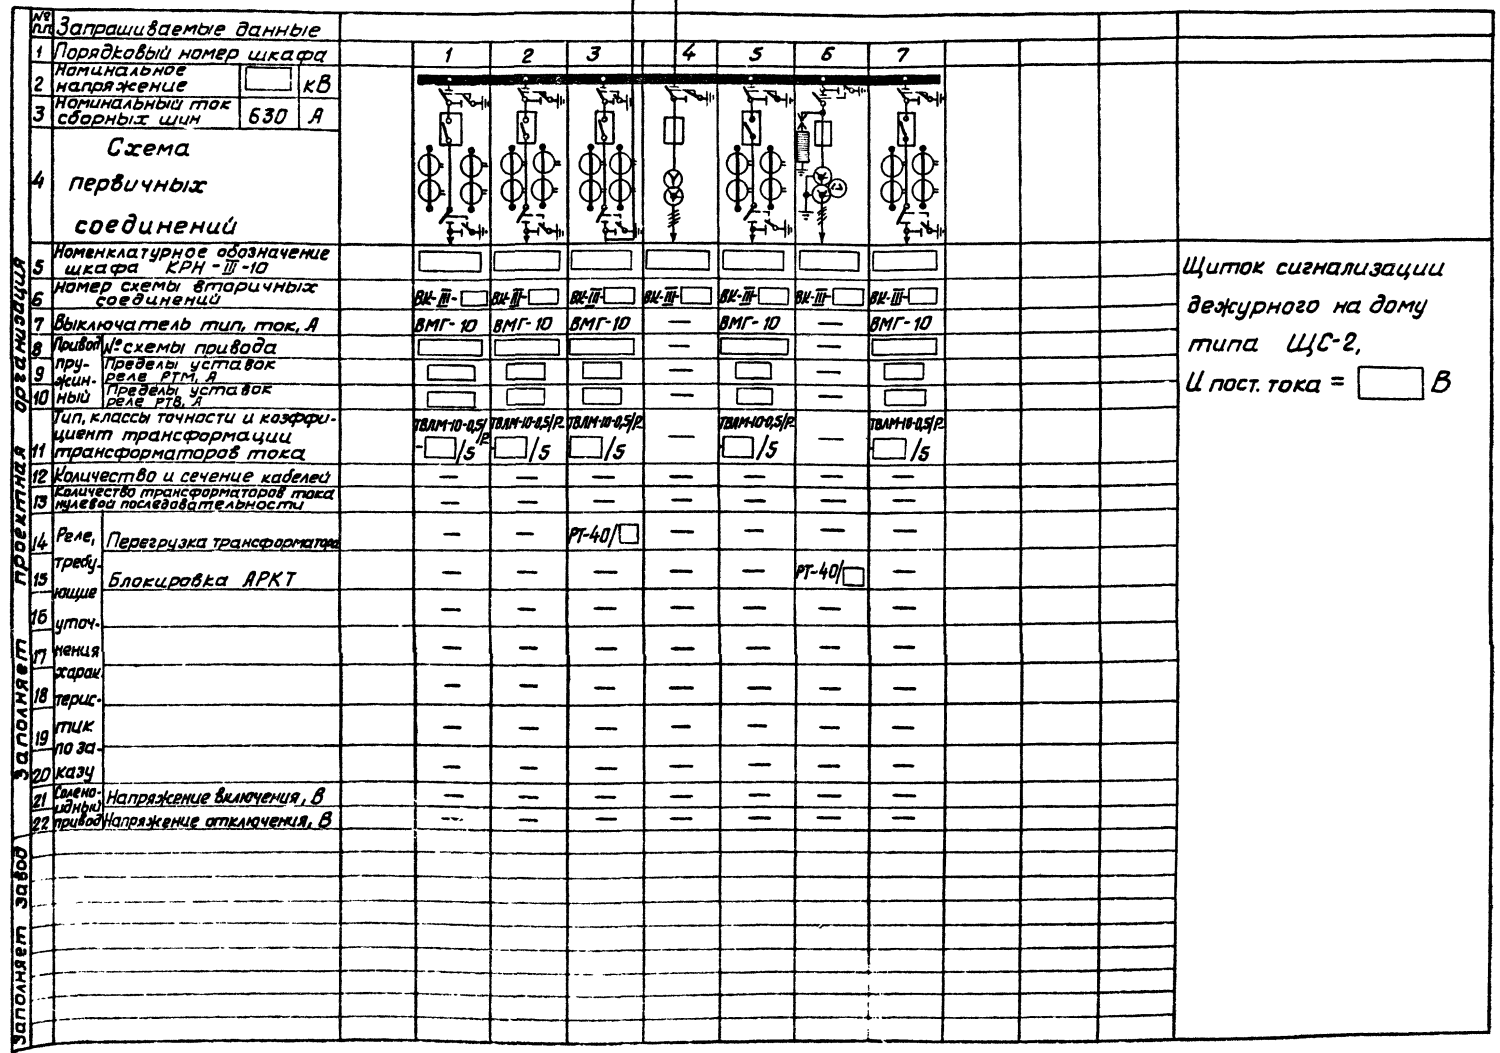 № п.п Запрашиваемые данные
1 Порядковый номер шкафа 1 2 3 4 5 6 7
2 Номинальное напряжение кВ
3 Номинальный ток сборных шин 630 А
4 Схема первичных соединений
5 Номенклатурное обозначение шкафа КРН-III-10
6 Номер схемы вторичных соединений ВК-III- ВК-III- ВК-III- ВК-III- ВК-III- ВК-III- ВК-III-
7 Выключатель тип, ток, А ВМГ-10 ВМГ-10 ВМГ-10 — ВМГ-10 — ВМГ-10
Привод пружинный
8 № схемы привода — —
9 Пределы уставок реле РТМ, А — —
10 Пределы уставок реле РТВ, А — —
11 Тип, классы точности и коэффициент трансформации трансформаторов тока ТВЛМ-10-0,5/Р- /5 ТВЛМ-10-0,5/Р- /5 ТВЛМ-10-0,5/Р- /5 — ТВЛМ-10-0,5/Р- /5 — ТВЛМ-10-0,5/Р- /5
12 Количество и сечение кабелей — — — — — — —
13 Количество трансформаторов тока нулевой последовательности — — — — — — —
Реле, требующие уточнения характеристик по заказу
14 Перегрузка трансформатора — — РТ-40/ — — — —
15 Блокировка АРКТ — — — — — РТ-40/ —
16 — — — — — — —
17 — — — — — — —
18 — — — — — — —
19 — — — — — — —
20 — — — — — — —
Соленоидный привод
21 Напряжение включения, В — — — — — — —
22 Напряжение отключения, В — — — — — — —
Заполняет проектная организация
Заполняет завод
Щиток сигнализации
дежурного на дому
типа ЩС-2,
U пост. тока = В